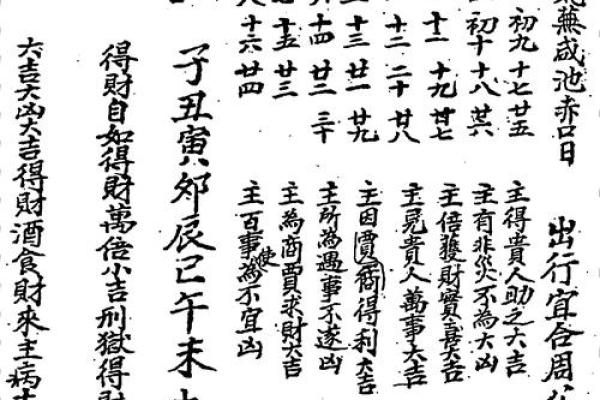 蕪咸池赤口日 出行宜合周公
初九 十七 廿五 主得貴人助之大吉
初十 十八 廿六 主有非災不為大凶
十一 十九 廿七 主倍獲財寶喜大吉
十二 二十 廿八 主見貴人萬事大吉
十三 廿一 廿九 主因賈商得利大吉
十四 廿二 三十 主所為遇事不遂凶
十五 廿三 主為商賈求財大吉
十六 廿四 主百事使為不宜凶
子丑寅卯辰巳午未
得財自如得財萬倍小吉刑獄得財
六吉大凶大吉得財酒食財來主病